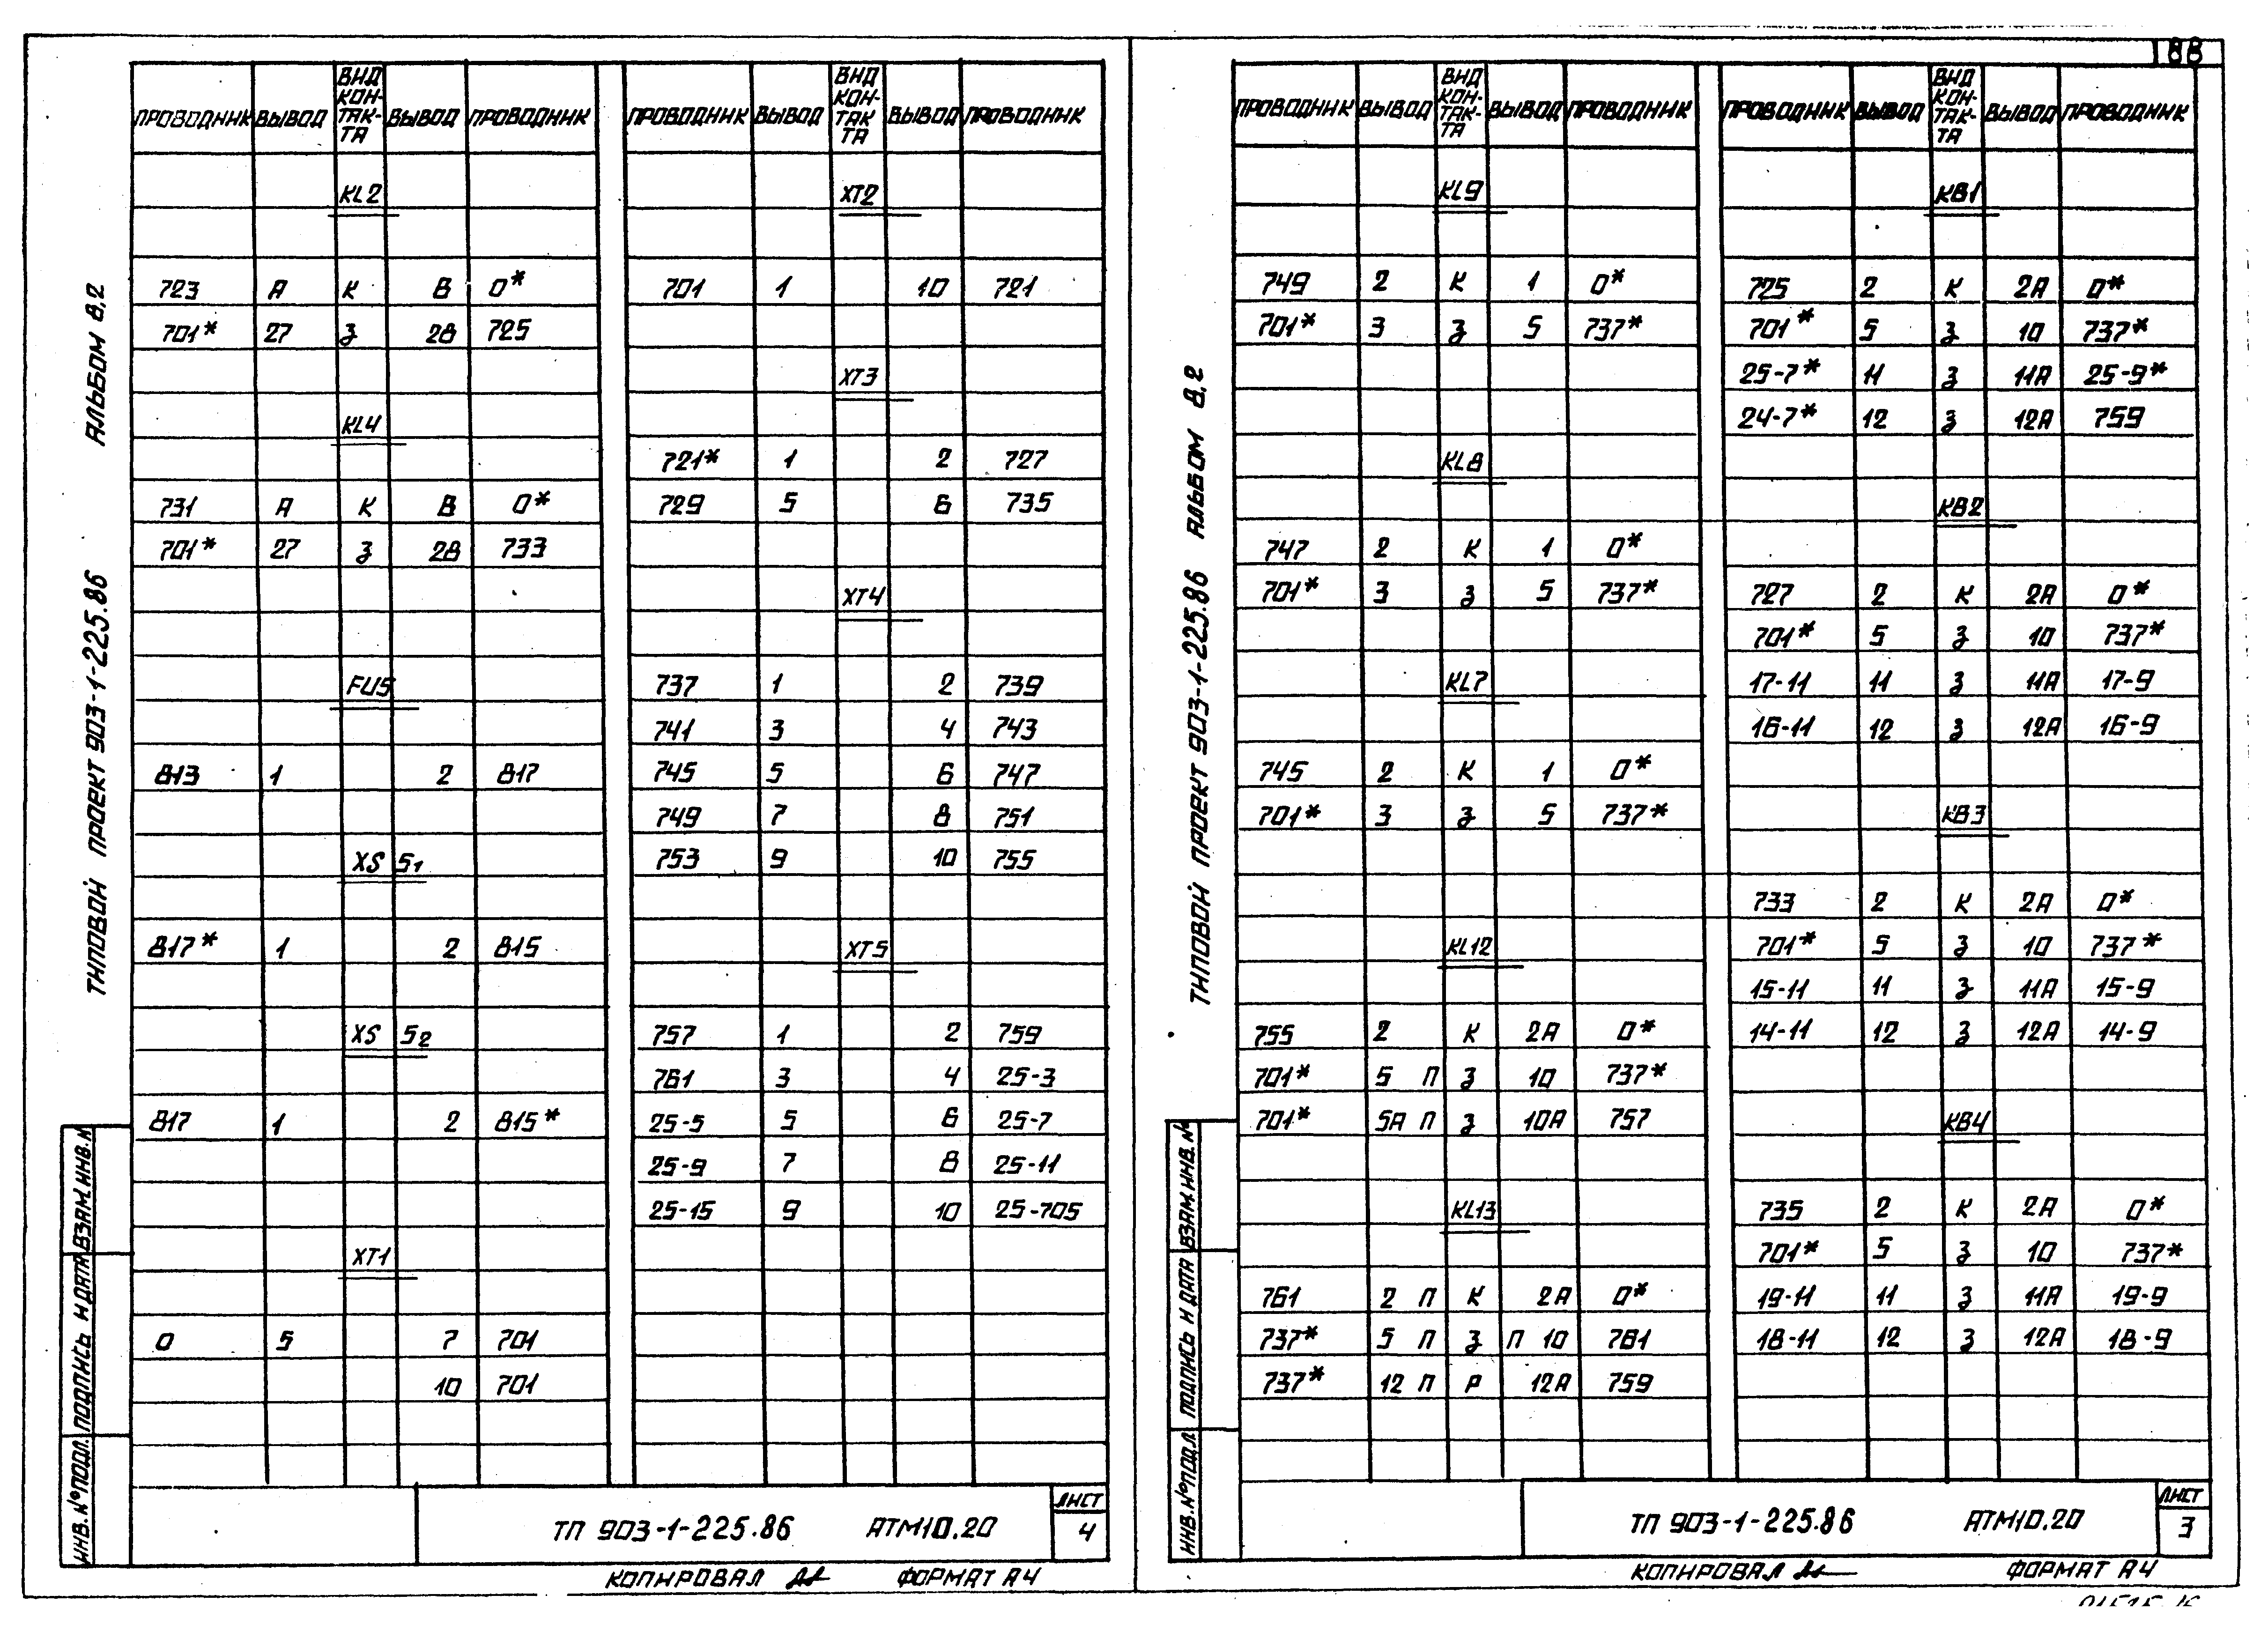 188
АЛЬБОМ 8.2
ТИПОВОЙ ПРОЕКТ 903-1-225.86
ПРОВОДНИК ВЫВОД ВИД КОН-ТАК-ТА ВЫВОД ПРОВОДНИК
KL2
723 А К В 0*
701* 27 З 28 725
KL4
731 А К В 0*
701* 27 З 28 733
FU5
813 1 2 817
XS 51
817* 1 2 815
XS 52
817 1 2 815*
XT1
0 5 7 701
10 701
ПРОВОДНИК ВЫВОД ВИД КОН-ТАК ТА ВЫВОД ПРОВОДНИК
XT2
701 1 10 721
XT3
721* 1 2 727
729 5 6 735
XT4
737 1 2 739
741 3 4 743
745 5 6 747
749 7 8 751
753 9 10 755
XT5
757 1 2 759
761 3 4 25-3
25-5 5 6 25-7
25-9 7 8 25-11
25-15 9 10 25-705
ИНВ.№ПОДЛ. ПОДПИСЬ И ДАТА ВЗАМ.ИНВ.№
ТП 903-1-225.86 АТМ10.20
ЛИСТ
4
КОПИРОВАЛ ФОРМАТ А4
АЛЬБОМ 8.2
ТИПОВОЙ ПРОЕКТ 903-1-225.86
ПРОВОДНИК ВЫВОД ВИД КОН-ТАК-ТА ВЫВОД ПРОВОДНИК
KL9
749 2 К 1 0*
701* 3 З 5 737*
KL8
747 2 К 1 0*
701* 3 З 5 737*
KL7
745 2 К 1 0*
701* 3 З 5 737*
KL12
755 2 К 2А 0*
701* 5 П З 10 737*
701* 5А П З 10А 757
KL13
761 2 П К 2А 0*
737* 5 П З П 10 761
737* 12 П Р 12А 759
ПРОВОДНИК ВЫВОД ВИД КОН-ТАК-ТА ВЫВОД ПРОВОДНИК
КВ1
725 2 К 2А 0*
701* 5 З 10 737*
25-7* 11 З 11А 25-9*
24-7* 12 З 12А 759
КВ2
727 2 К 2А 0*
701* 5 З 10 737*
17-11 11 З 11А 17-9
16-11 12 З 12А 16-9
КВ3
733 2 К 2А 0*
701* 5 З 10 737*
15-11 11 З 11А 15-9
14-11 12 З 12А 14-9
КВ4
735 2 К 2А 0*
701* 5 З 10 737*
19-11 11 З 11А 19-9
18-11 12 З 12А 18-9
ИНВ.№ПОДЛ. ПОДПИСЬ И ДАТА ВЗАМ.ИНВ.№
ТП 903-1-225.86 АТМ10.20
ЛИСТ
3
КОПИРОВАЛ ФОРМАТ А4